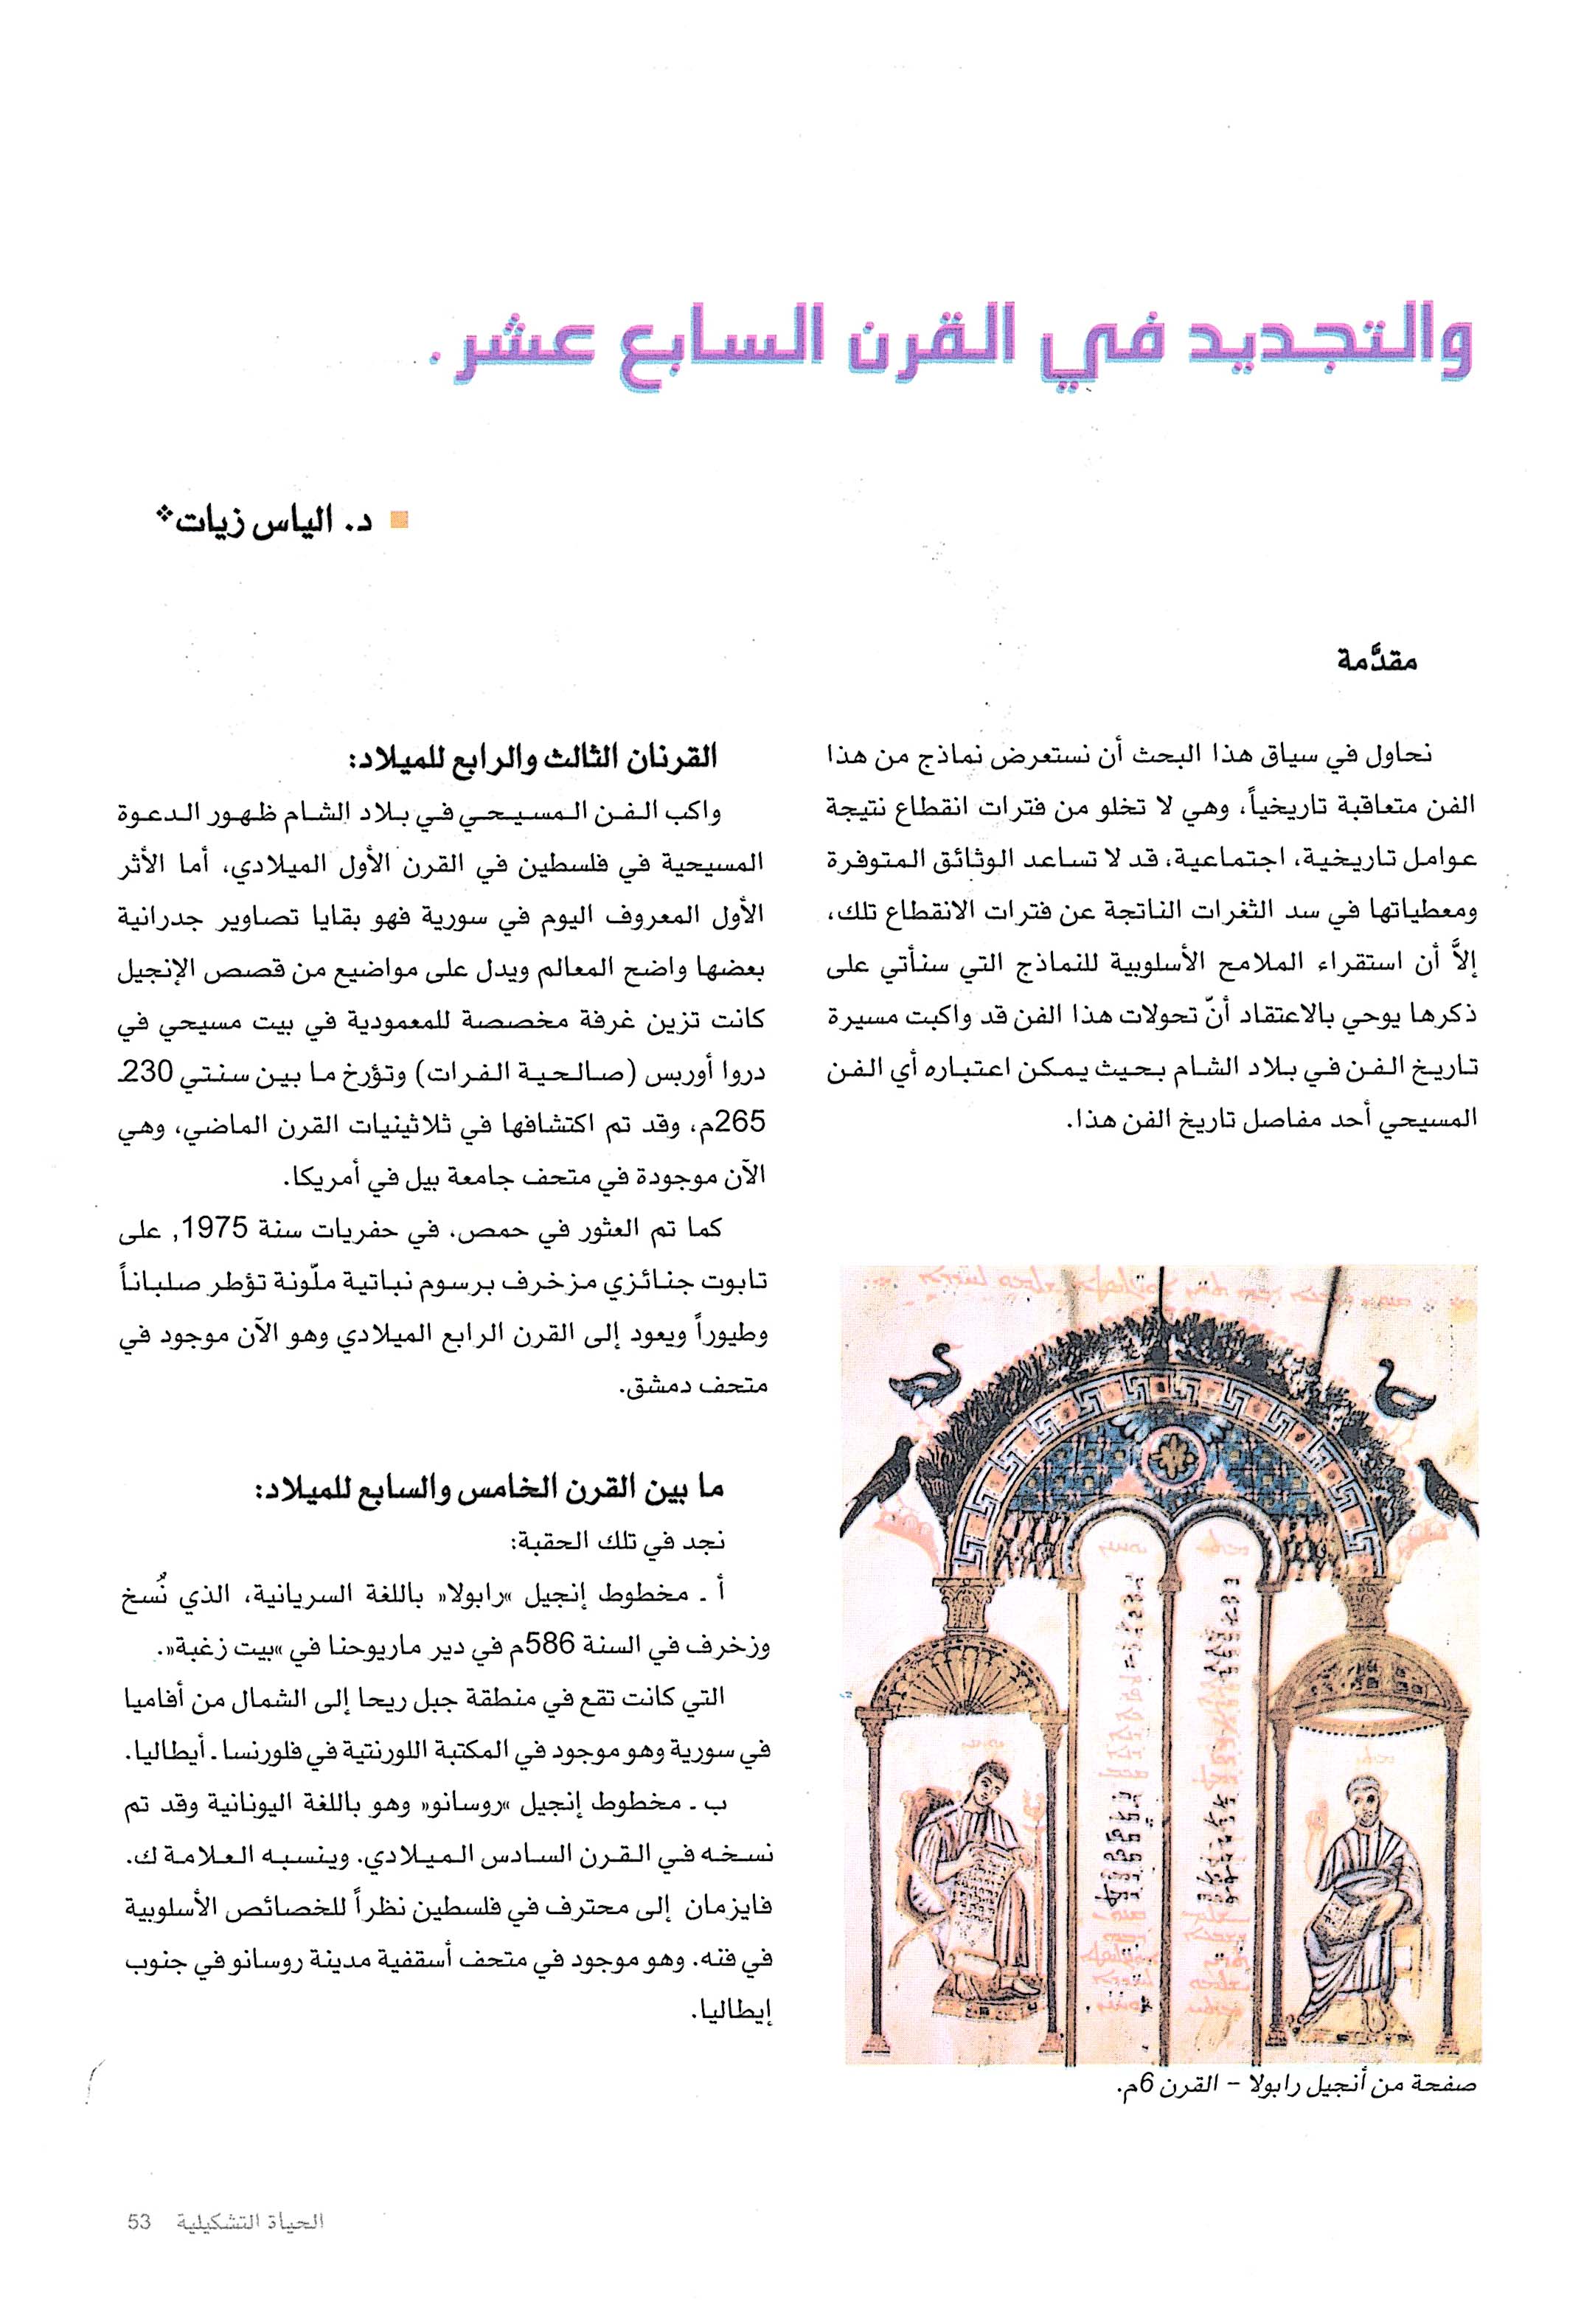 والتجديد في القرن السابع عشر.
د. الياس زيات*
مقدَّمة
نحاول في سياق هذا البحث أن نستعرض نماذج من هذا
الفن متعاقبة تاريخياً، وهي لا تخلو من فترات انقطاع نتيجة
عوامل تاريخية، اجتماعية، قد لا تساعد الوثائق المتوفرة
ومعطياتها في سد الثغرات الناتجة عن فترات الانقطاع تلك،
إلاَّ أن استقراء الملامح الأسلوبية للنماذج التي سنأتي على
ذكرها يوحي بالاعتقاد أنّ تحولات هذا الفن قد واكبت مسيرة
تاريخ الفن في بلاد الشام بحيث يمكن اعتباره أي الفن
المسيحي أحد مفاصل تاريخ الفن هذا.
صفحة من أنجيل رابولا – القرن 6م.
القرنان الثالث والرابع للميلاد:
واكب الفن المسيحي في بلاد الشام ظهور الدعوة
المسيحية في فلسطين في القرن الأول الميلادي، أما الأثر
الأول المعروف اليوم في سورية فهو بقايا تصاوير جدرانية
بعضها واضح المعالم ويدل على مواضيع من قصص الإنجيل
كانت تزين غرفة مخصصة للمعمودية في بيت مسيحي في
دروا أوربس (صالحية الفرات) وتؤرخ ما بين سنتي 230ـ
265م، وقد تم اكتشافها في ثلاثينيات القرن الماضي، وهي
الآن موجودة في متحف جامعة بيل في أمريكا.
كما تم العثور في حمص، في حفريات سنة 1975, على
تابوت جنائزي مزخرف برسوم نباتية ملّونة تؤطر صلباناً
وطيوراً ويعود إلى القرن الرابع الميلادي وهو الآن موجود في
متحف دمشق.
ما بين القرن الخامس والسابع للميلاد:
نجد في تلك الحقبة:
أ ـ مخطوط إنجيل »رابولا« باللغة السريانية، الذي نُسخ
وزخرف في السنة 586م في دير ماريوحنا في »بيت زغبة«.
التي كانت تقع في منطقة جبل ريحا إلى الشمال من أفاميا
في سورية وهو موجود في المكتبة اللورنتية في فلورنسا ـ أيطاليا.
ب ـ مخطوط إنجيل »روسانو« وهو باللغة اليونانية وقد تم
نسخه في القرن السادس الميلادي. وينسبه العلامة ك.
فايزمان إلى محترف في فلسطين نظراً للخصائص الأسلوبية
في فنه. وهو موجود في متحف أسقفية مدينة روسانو في جنوب
إيطاليا.
الحياة التشكيلية 53